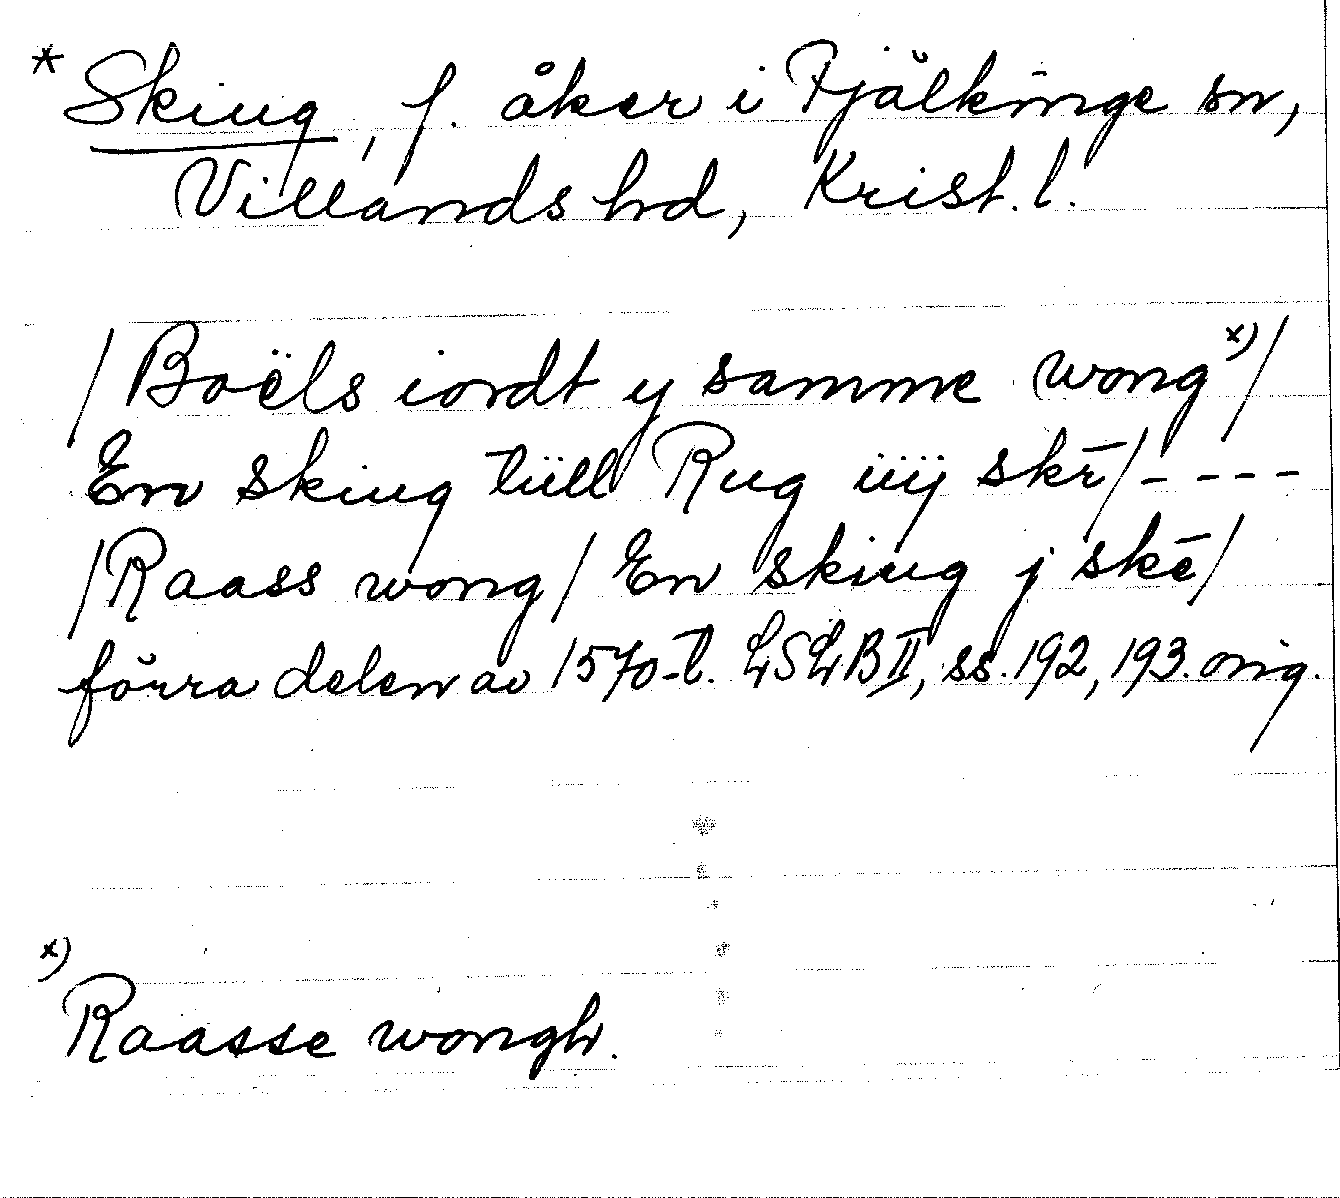 * Skiug, f. åker i Fjälkinge sn,
Villands hd, Krist. l.
/Boëls iordt y samme wong x)/
En skiug tüll Rug iiij skr̄/----
/Raass wong/ En skiug j skē/
förra delen av 1570-t. LSLB II, ss. 192, 193. orig.
x)
Raasse wongh.